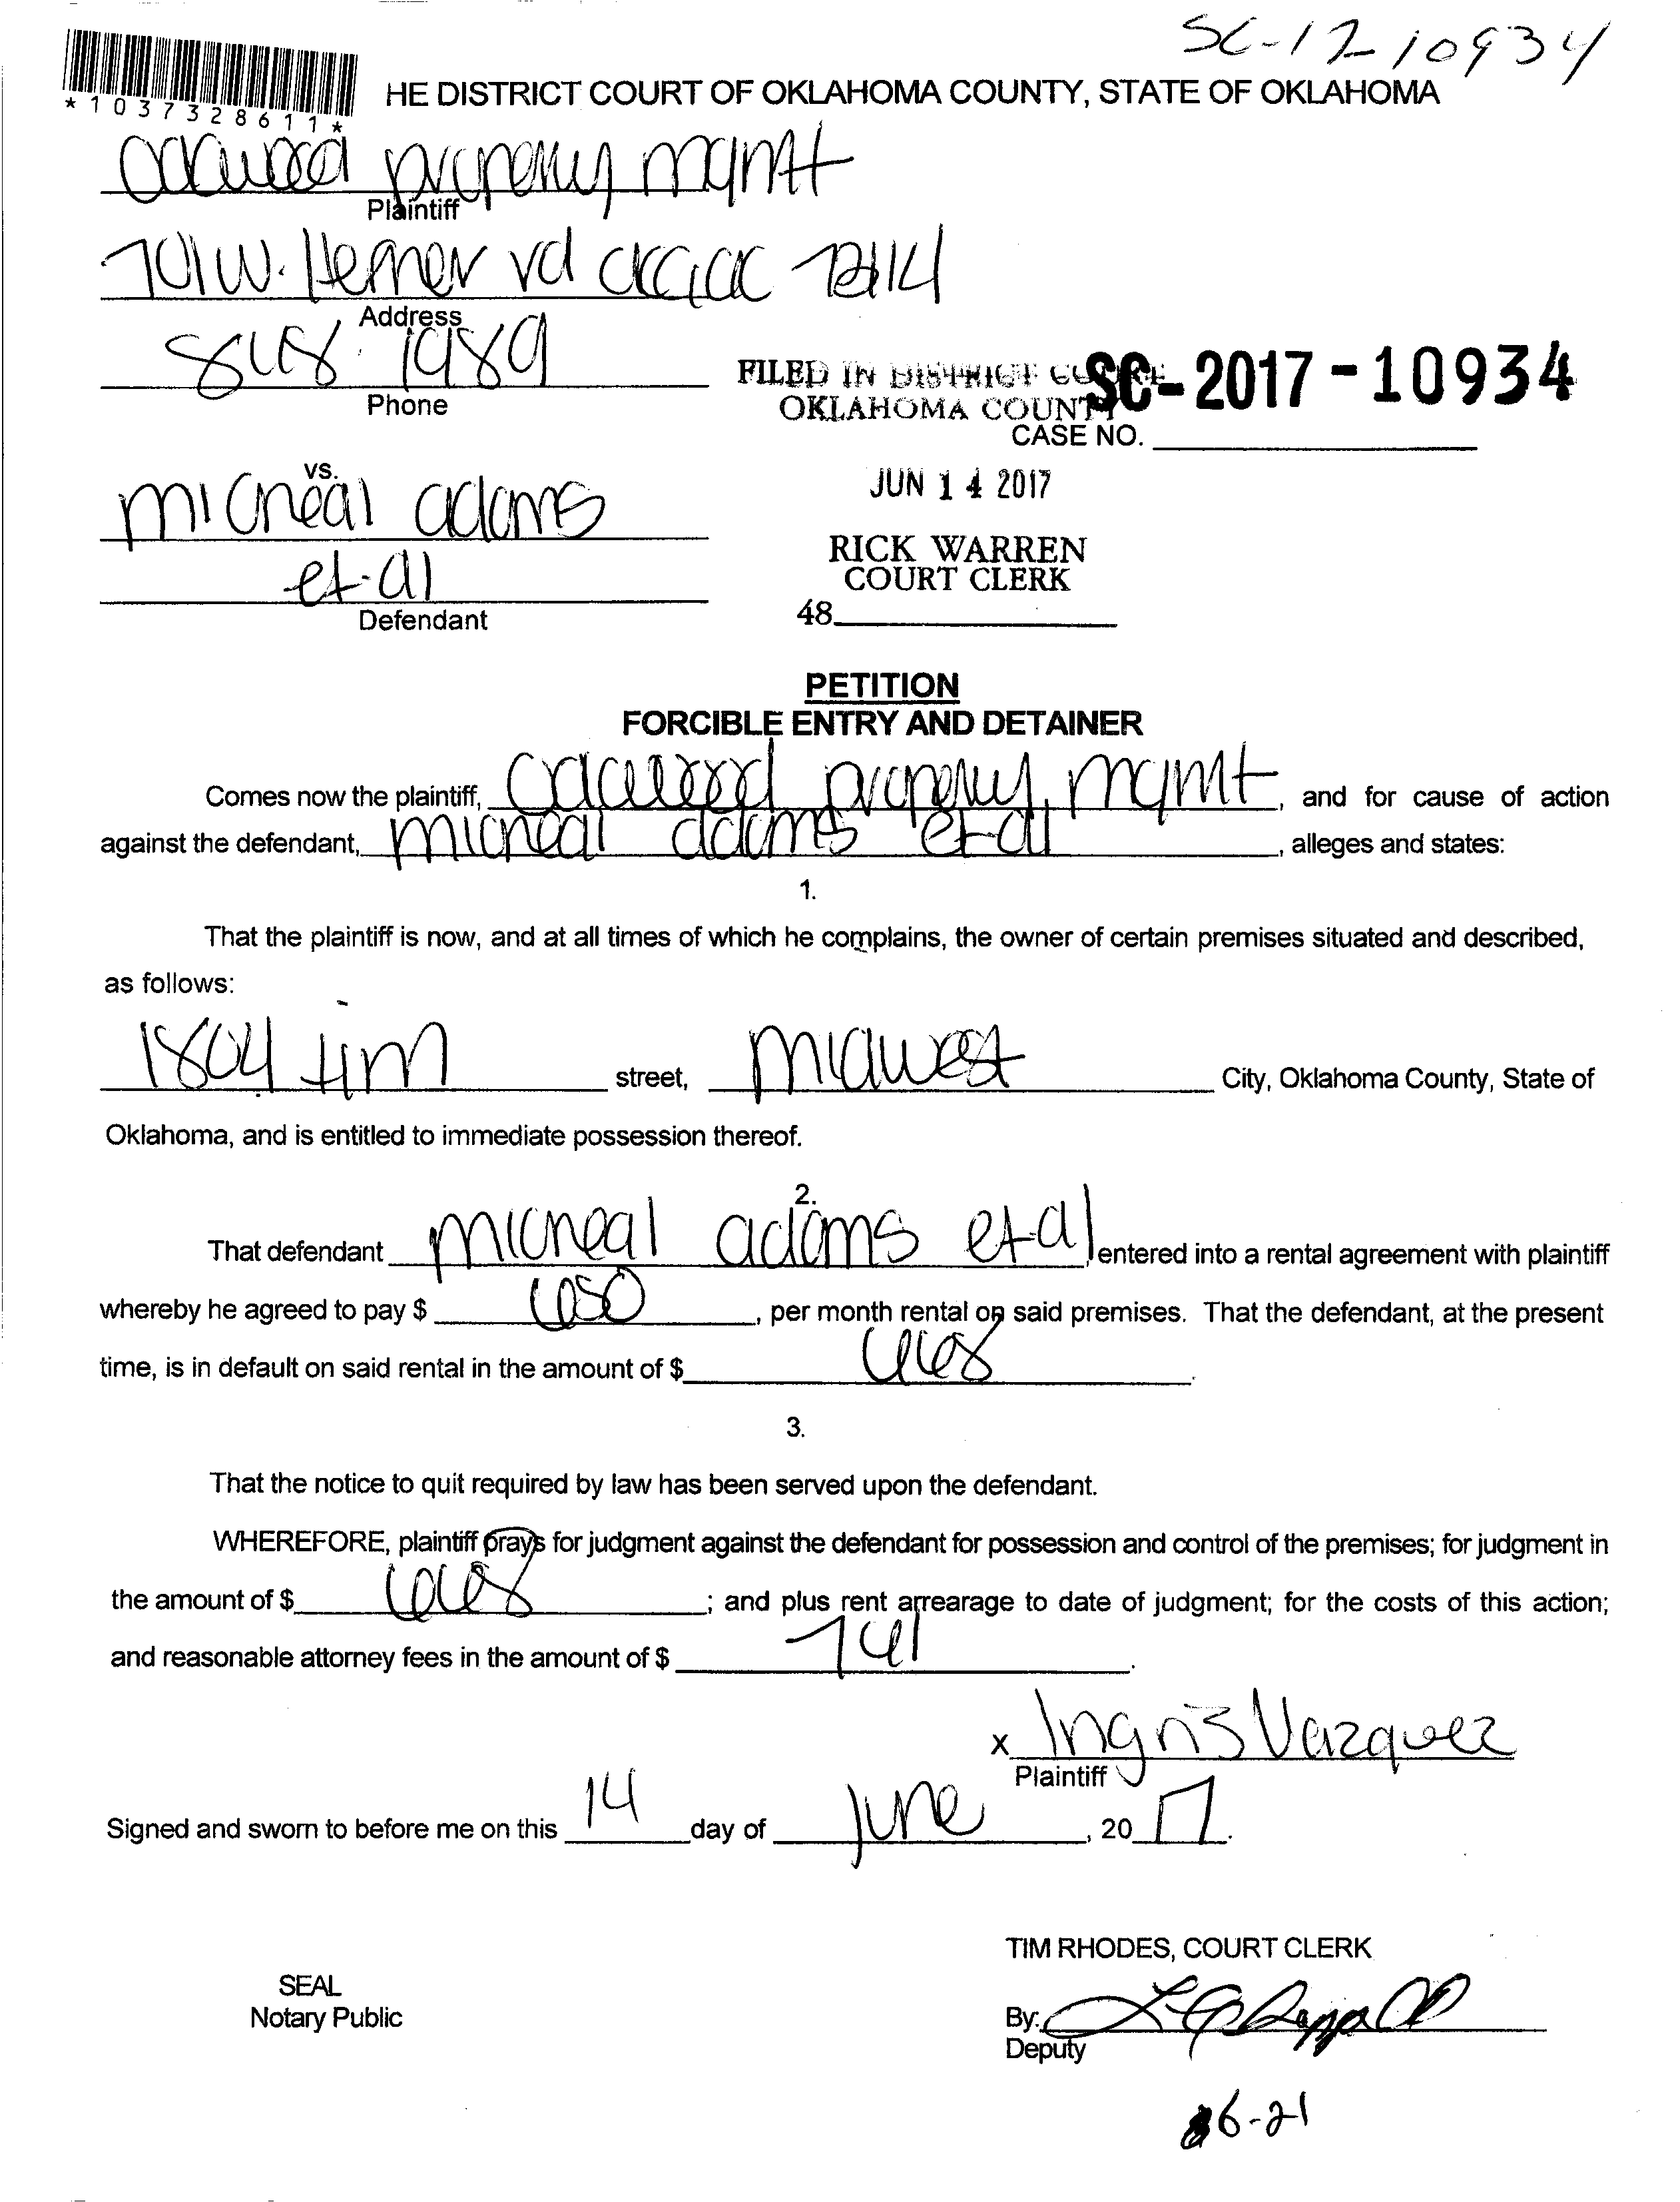 SC-17-10934
*1037328611*
HE DISTRICT COURT OF OKLAHOMA COUNTY, STATE OF OKLAHOMA
property mgmt
Plaintiff
701 W. Hefner rd
Address
1989
Phone
FILED IN DISTRICT
OKLAHOMA COUNTY
SC-2017-10934
CASE NO.
vs.
JUN 14 2017
micheal adams
et-al
RICK WARREN
COURT CLERK
Defendant
48
PETITION
FORCIBLE ENTRY AND DETAINER
Comes now the plaintiff, property mgmt, and for cause of action
against the defendant, micheal adams et-al, alleges and states:
1.
That the plaintiff is now, and at all times of which he complains, the owner of certain premises situated and described,
as follows:
1804 tim street, midwest City, Oklahoma County, State of
Oklahoma, and is entitled to immediate possession thereof.
2.
That defendant micheal adams et-al, entered into a rental agreement with plaintiff
whereby he agreed to pay $ 650, per month rental on said premises. That the defendant, at the present
time, is in default on said rental in the amount of $
3.
That the notice to quit required by law has been served upon the defendant.
WHEREFORE, plaintiff prays for judgment against the defendant for possession and control of the premises; for judgment in
the amount of $ ; and plus rent arrearage to date of judgment; for the costs of this action;
and reasonable attorney fees in the amount of $ .
x Ingris Vazquez
Plaintiff
Signed and sworn to before me on this 14 day of June, 2017.
TIM RHODES, COURT CLERK
SEAL
Notary Public
By:
Deputy
6-21